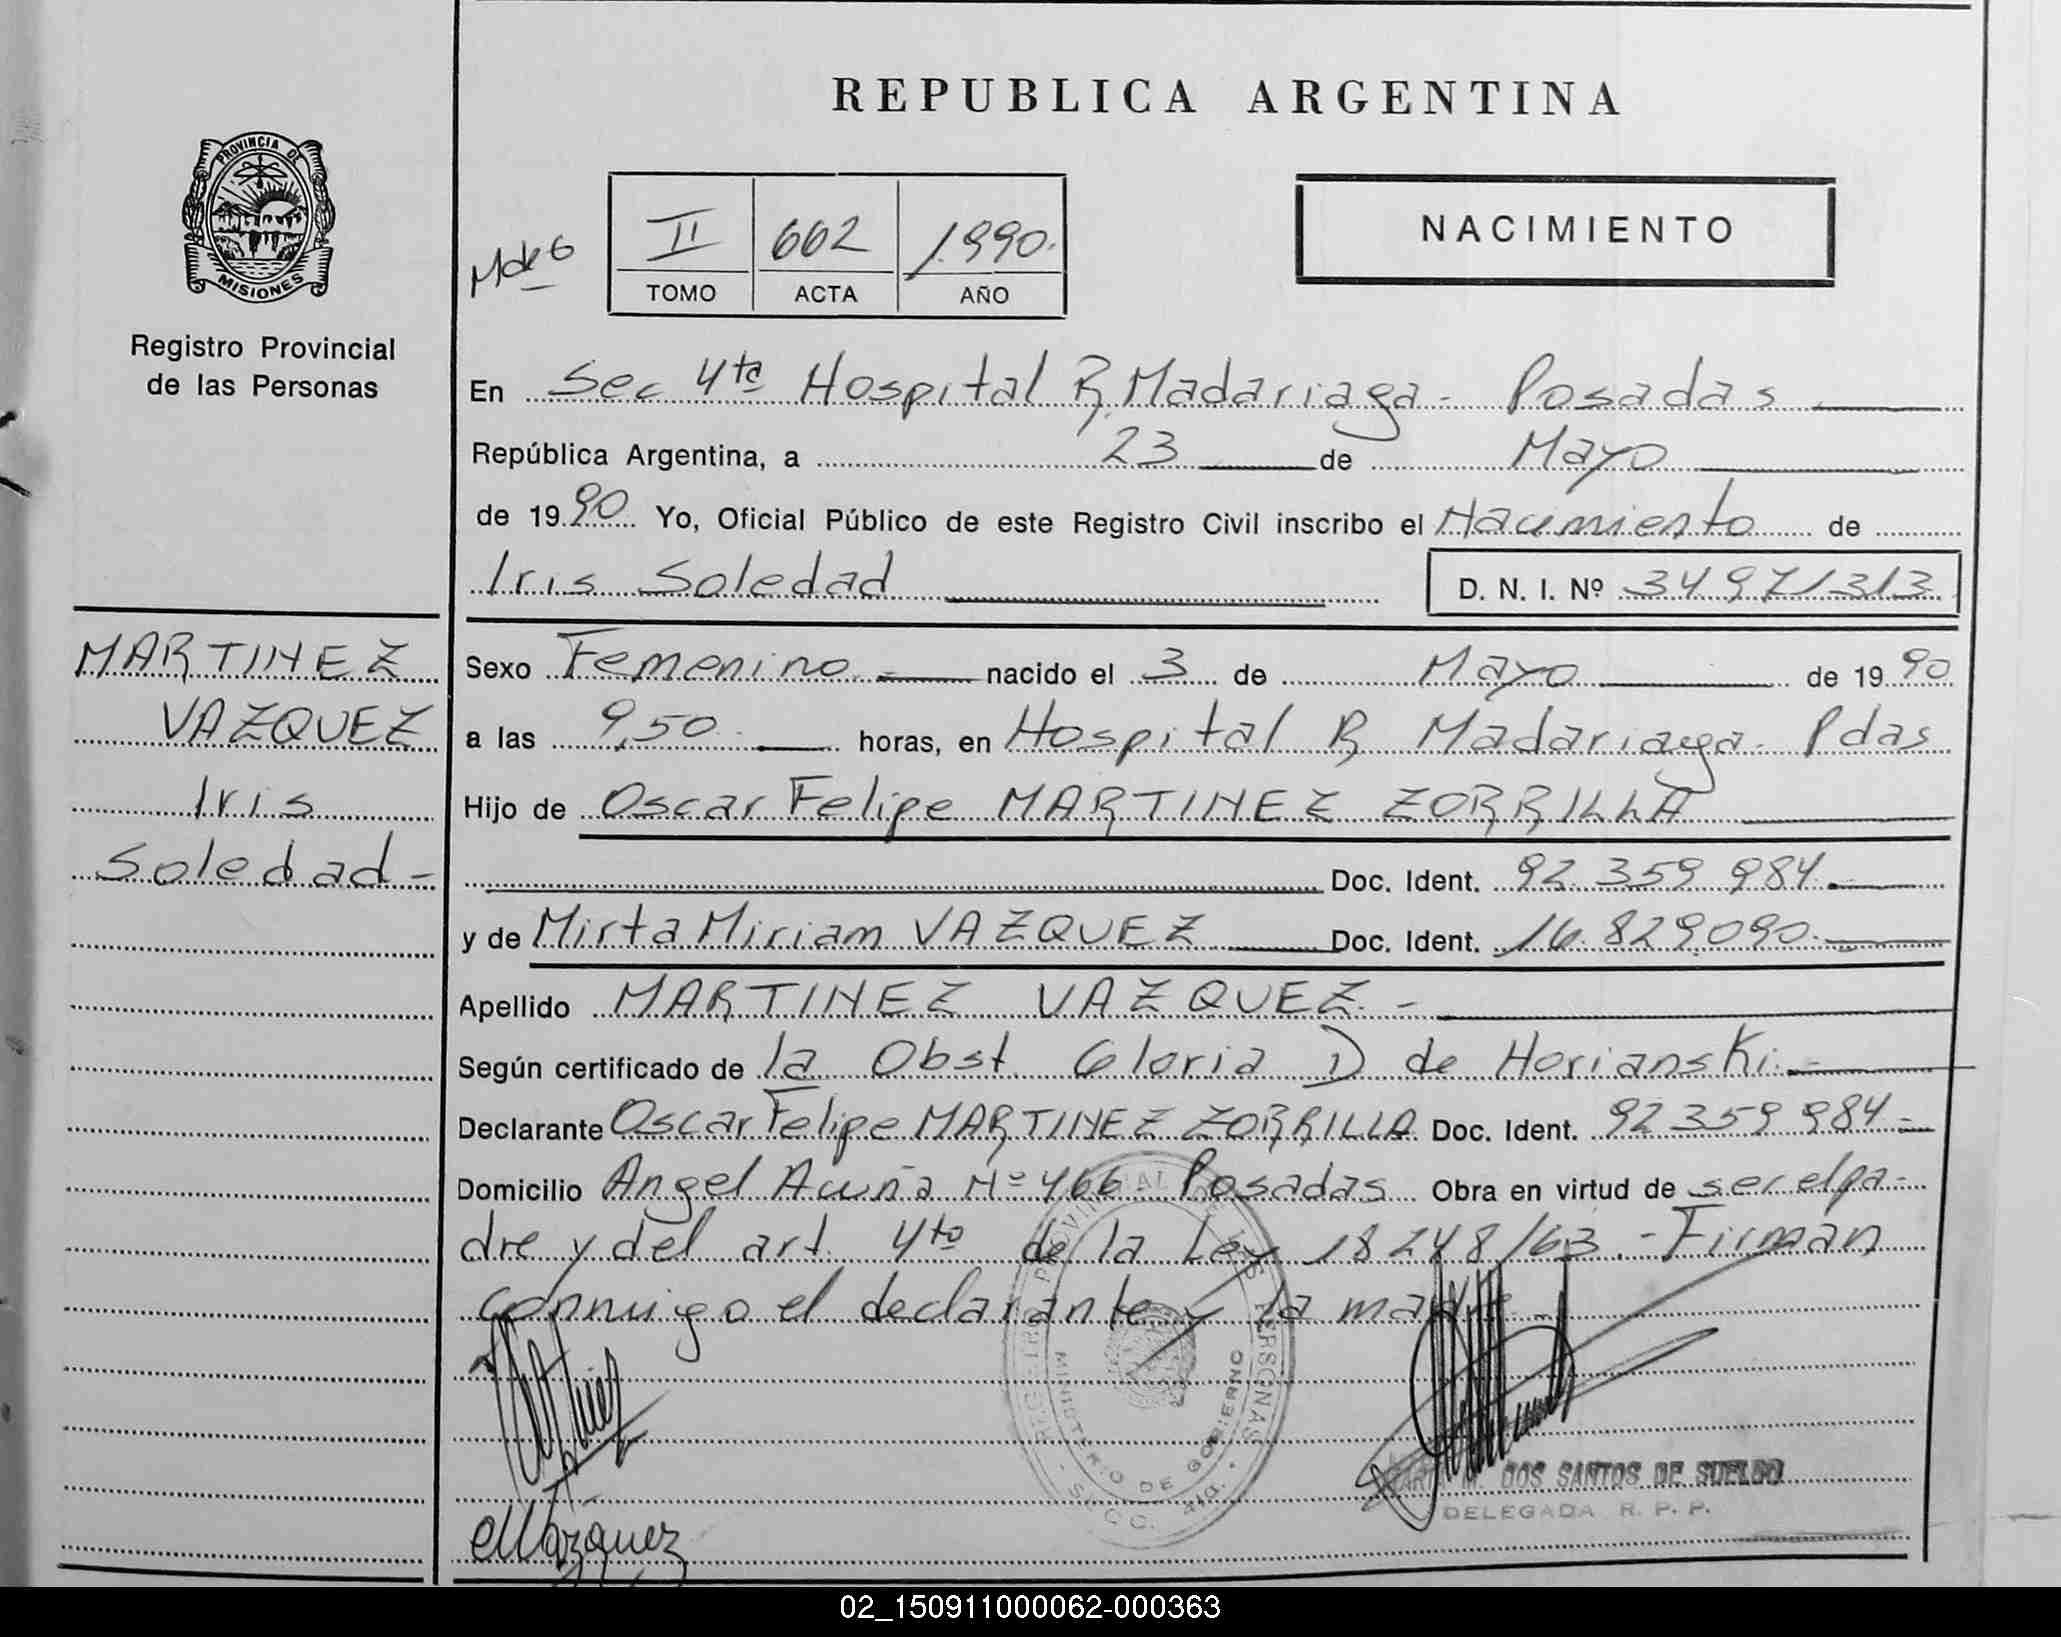 REPUBLICA ARGENTINA
PROVINCIA DE
MISIONES
Registro Provincial
de las Personas
Mdeo
II 662 1.990.
TOMO ACTA AÑO
NACIMIENTO
En Sec 4ta Hospital R. Madariaga - Posadas
República Argentina, a 23 de Mayo
de 19 90 Yo, Oficial Público de este Registro Civil inscribo el Nacimiento de
Iris Soledad D. N. I. Nº 34971313
MARTINEZ
VAZQUEZ
Iris
Soledad -
Sexo Femenino nacido el 3 de Mayo de 19 90
a las 9,50 horas, en Hospital R Madariaga - Pdas
Hijo de Oscar Felipe MARTINEZ ZORRILLA
Doc. Ident. 92 359 984
y de Mirta Miriam VAZQUEZ Doc. Ident. 16.829.090
Apellido MARTINEZ VAZQUEZ. -
Según certificado de la Obst Gloria D de Horianski. -
Declarante Oscar Felipe MARTINEZ ZORRILLA Doc. Ident. 92 359 984 -
Domicilio Angel Acuña Nº 466 - Posadas Obra en virtud de ser el pa-
dre y del art 4to de la Ley 18248/63. - Firman
conmigo el declarante y la madre. -
REGISTRO PROVINCIAL DE LAS PERSONAS
MINISTERIO DE GOBIERNO
DOS SANTOS DE SUELDO
DELEGADA R. P. P.
MVazquez
02_150911000062-000363